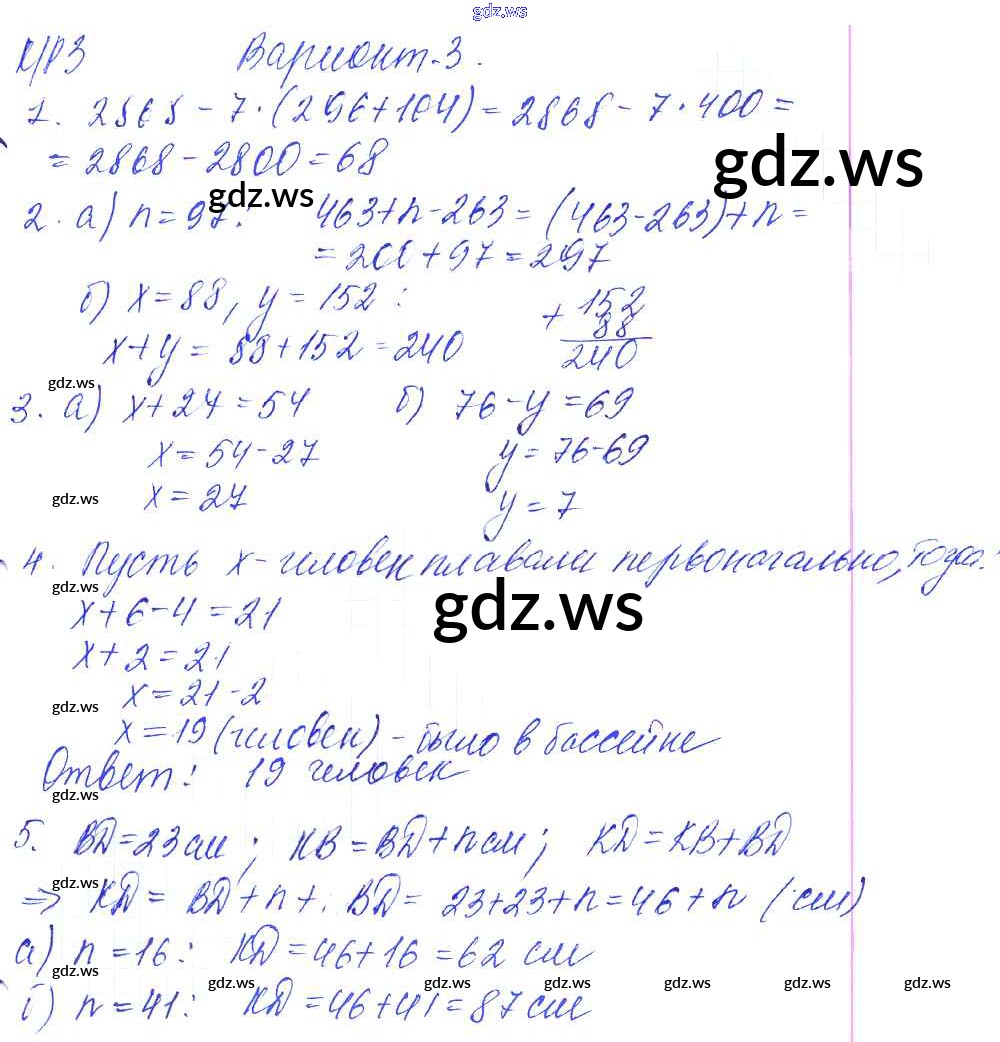 gdz.ws
К/Р3 Вариант-3.
1. 2868 - 7·(296+104) = 2868 - 7·400 =
= 2868 - 2800 = 68
gdz.ws
gdz.ws
2. а) n = 97: 463+n-263 = (463-263)+n =
= 200+97 = 297
б) x = 88, y = 152:
x+y = 88+152 = 240
+ 152
88
240
gdz.ws
3. а) x+27 = 54 б) 76-y = 69
x = 54-27 y = 76-69
gdz.ws
x = 27 y = 7
4. Пусть x-человек плавали первоначально, тогда:
gdz.ws
gdz.ws
x+6-4 = 21
x+2 = 21
x = 21-2
gdz.ws
x = 19 (человек) - было в бассейне
Ответ: 19 человек
gdz.ws
5. BD = 23 см; KB = BD + n см; KD = KB + BD
gdz.ws
=> KD = BD + n + BD = 23+23+n = 46+n (см)
а) n = 16: KD = 46+16 = 62 см
gdz.ws gdz.ws gdz.ws gdz.ws gdz.ws gdz.ws
б) n = 41: KD = 46+41 = 87 см